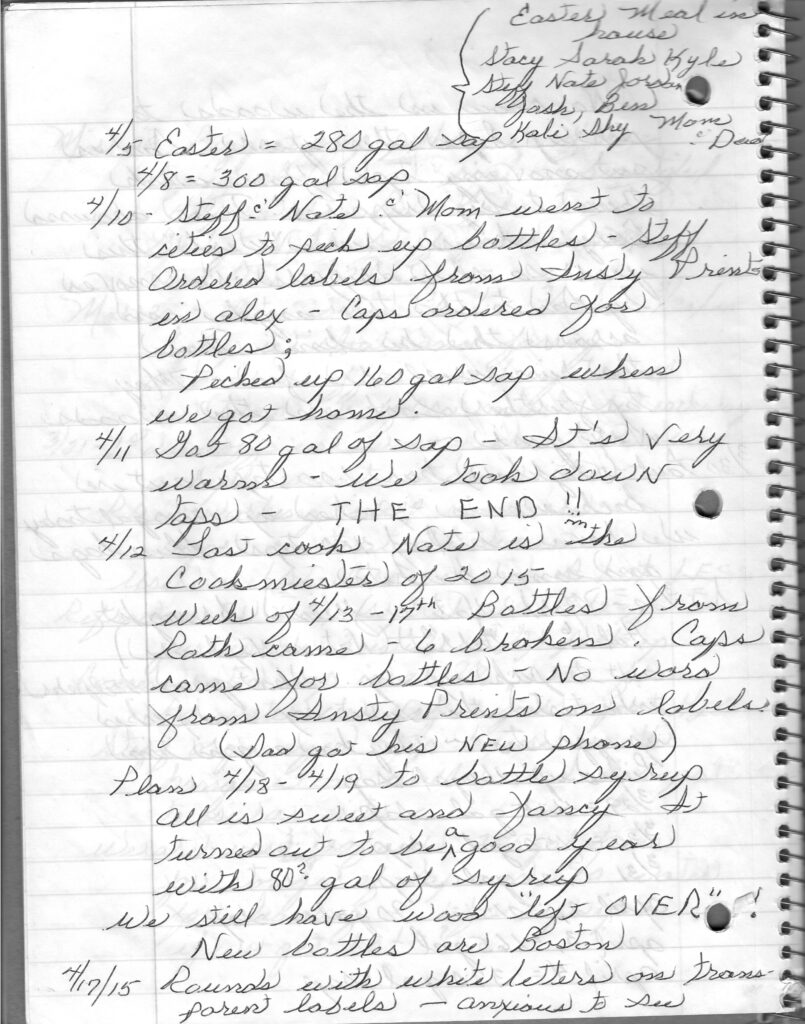 Easter Meal in
house
Stacy Sarah Kyle
Steff Nate Jordan
Josh, Ben
Kali Shy Mom
& Dad
4/5 Easter = 280 gal sap
4/8 = 300 gal sap
4/10 - Steff & Nate & Mom went to
cities to pick up bottles - Steff
Ordered labels from Insty Prints
in alex - Caps ordered for
bottles;
Picked up 160 gal sap when
we got home.
4/11 Got 80 gal of sap - It's very
warm - we took down
taps - THE END !!
4/12 Last cook Nate is the
Cookmiester of 2015
Week of 4/13 - 17th Bottles from
Roth came - 6 broken. Caps
came for bottles - No word
from Insty Prints on labels.
(Dad got his NEW phone)
Plan 4/18 - 4/19 to bottle syrup
All is sweet and fancy It
turned out to be a good year
with 80? gal of syrup
We still have wood "left OVER"!
New bottles are Boston
4/17/15 Rounds with white letters on trans-
parent labels - anxious to see